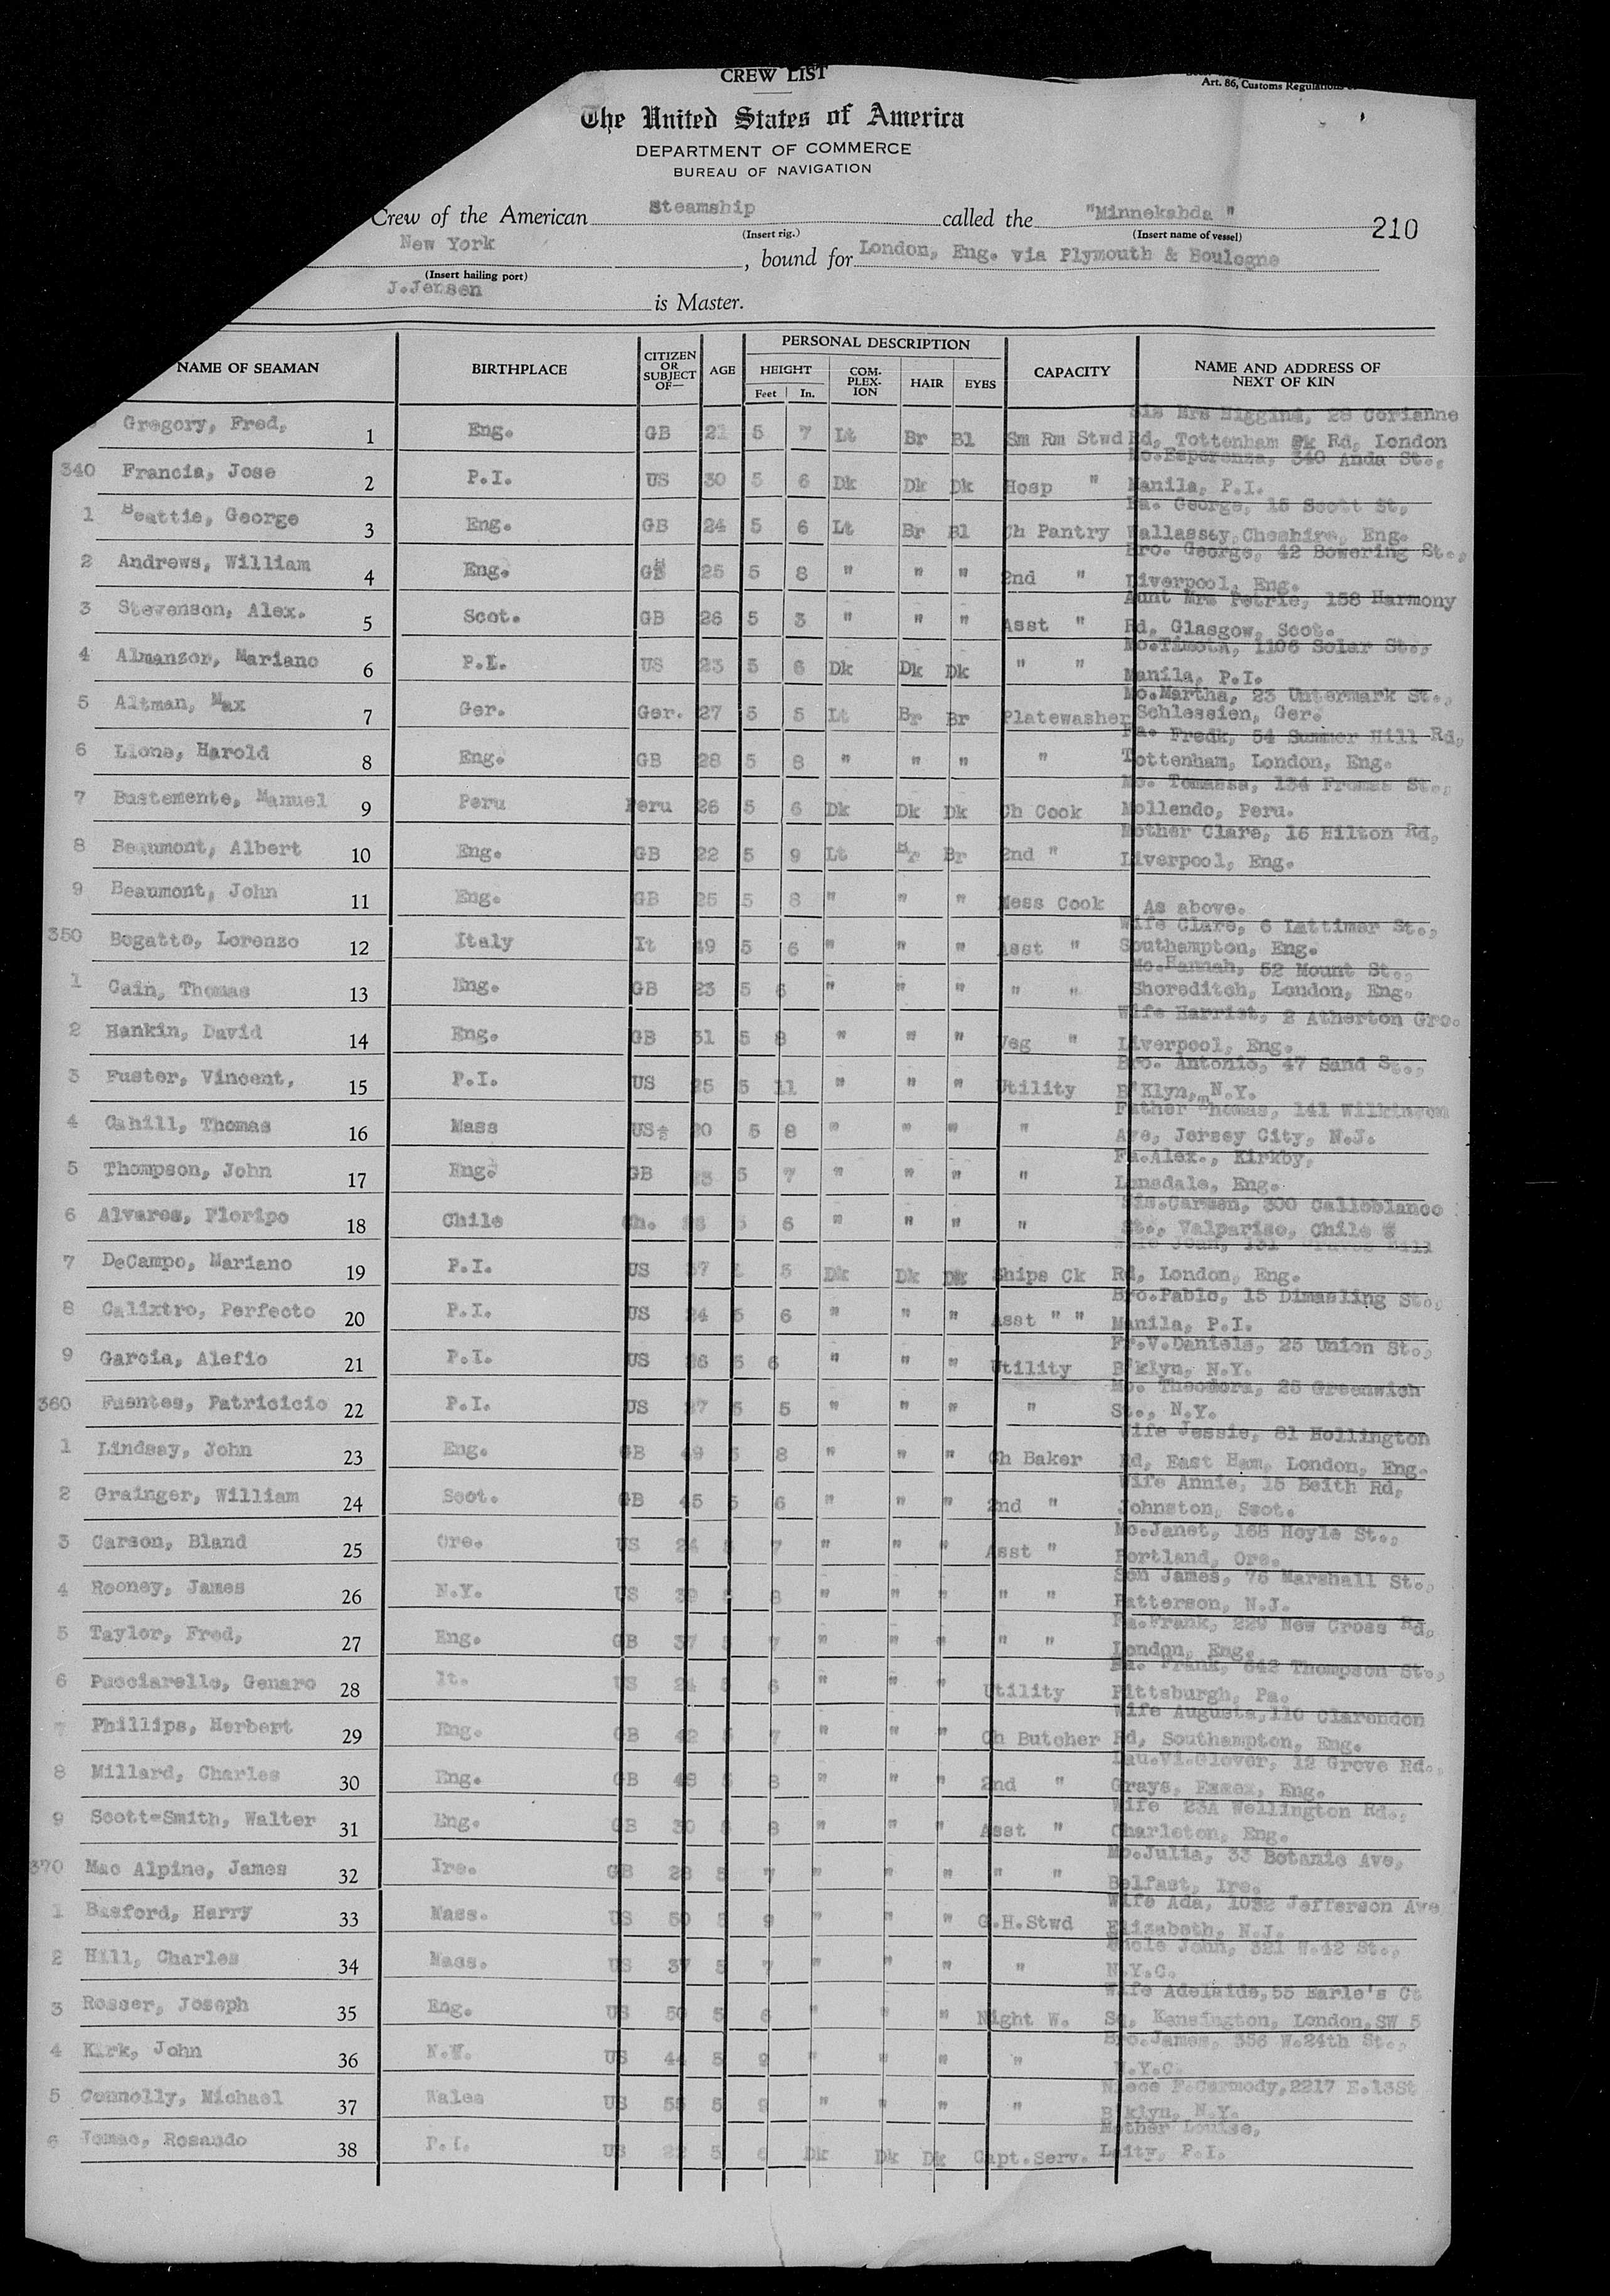 CREW LIST
Art. 86, Customs Regulations
The United States of America
DEPARTMENT OF COMMERCE
BUREAU OF NAVIGATION
Crew of the American Steamship called the "Minnekahda "
(Insert rig.) (Insert name of vessel)
210
New York , bound for London, Eng. via Plymouth & Boulogne
(Insert hailing port)
J.Jensen is Master.
NAME OF SEAMAN BIRTHPLACE CITIZEN OR SUBJECT OF— AGE PERSONAL DESCRIPTION CAPACITY NAME AND ADDRESS OF NEXT OF KIN
HEIGHT COM-PLEX-ION HAIR EYES
Feet In.
Sis Mrs Higgins, 28 Corianne
Gregory, Fred, 1 Eng. GB 21 5 7 Lt Br Bl Sm Rm Stwd Rd, Tottenham Pk Rd, London
Mo.Esperenza, 340 Anda St.,
340 Francia, Jose 2 P.I. US 30 5 6 Dk Dk Dk Hosp " Manila, P.I.
Fa. George, 15 Scott St,
1 Beattie, George 3 Eng. GB 24 5 6 Lt Br Bl Ch Pantry Wallassy,Cheshire, Eng.
Bro. George, 42 Bowering St.,
2 Andrews, William 4 Eng. GB 25 5 8 " " " 2nd " Liverpool, Eng.
Aunt Mrs Petrie, 158 Harmony
3 Stevenson, Alex. 5 Scot. GB 26 5 3 " " " Asst " Rd, Glasgow, Scot.
Mo.Timota, 1106 Solar St.,
4 Almanzor, Mariano 6 P.I. US 23 5 6 Dk Dk Dk " " Manila, P.I.
Mo.Martha, 23 Untermark St.,
5 Altman, Max 7 Ger. Ger. 27 5 5 Lt Br Br Platewasher Schlessien, Ger.
Fa. Fredk, 54 Summer Hill Rd,
6 Lions, Harold 8 Eng. GB 28 5 8 " " " " Tottenham, London, Eng.
Mo. Tomassa, 134 St.,
7 Bustemente, Manuel 9 Peru Peru 26 5 6 Dk Dk Dk Ch Cook Mollendo, Peru.
Mother Clare, 16 Hilton Rd,
8 Beaumont, Albert 10 Eng. GB 22 5 9 Lt Br Br 2nd " Liverpool, Eng.
9 Beaumont, John 11 Eng. GB 25 5 8 " " " Mess Cook As above.
Wife Clare, 6 Lattimer St.,
350 Bogatto, Lorenzo 12 Italy It 49 5 6 " " " Asst " Southampton, Eng.
Mo.Hannah, 52 Mount St.,
1 Cain, Thomas 13 Eng. GB 23 5 6 " " " " " Shoreditch, London, Eng.
Wife Harriet, 2 Atherton Gro.
2 Hankin, David 14 Eng. GB 31 5 8 " " " Veg " Liverpool, Eng.
Bro. Antonio, 47 Sand St.,
3 Fuster, Vincent, 15 P.I. US 25 5 11 " " " Utility B'Klyn, N.Y.
Father Thomas, 141 Wilkinson
4 Cahill, Thomas 16 Mass US 20 5 8 " " " " Ave, Jersey City, N.J.
Fa.Alex., Kirkby,
5 Thompson, John 17 Eng. GB 5 7 " " " " Lonsdale, Eng.
Sis.Carmen, 300 Calloblance
6 Alvares, Floripo 18 Chile Ch. 5 6 " " " " St., Valpariso, Chile
7 DeCampo, Mariano 19 P.I. US 37 5 Dk Dk Dk Ships Ck Rd, London, Eng.
Bro.Pablo, 15 Dimasling St.,
8 Calixtro, Perfecto 20 P.I. US 24 5 6 " " " Asst " " Manila, P.I.
Fr.V.Daniels, 25 Union St.,
9 Garcia, Alefio 21 P.I. US 26 5 6 " " " Utility B'klyn, N.Y.
Mo. Theodora, 25 Greenwich
360 Fuentes, Patricicio 22 P.I. US 27 5 5 " " " " St., N.Y.
Wife Jessie, 81 Hollington
1 Lindsay, John 23 Eng. GB 49 5 8 " " " Ch Baker Rd, East Ham, London, Eng.
Wife Annie, 15 Beith Rd,
2 Grainger, William 24 Scot. GB 45 5 6 " " " 2nd " Johnston, Scot.
Mo.Janet, 168 Hoyle St.,
3 Carson, Bland 25 Ore. US 24 5 7 " " " Asst " Portland, Ore.
Son James, 75 Marshall St.,
4 Rooney, James 26 N.Y. US 39 5 8 " " " " " Patterson, N.J.
Fa.Frank, 229 New Cross Rd,
5 Taylor, Fred, 27 Eng. GB 37 5 7 " " " " " London, Eng.
Fa. Frank, 642 Thompson St.,
6 Pucciarello, Genaro 28 It. US 24 5 6 " " " Utility Pittsburgh, Pa.
Wife Augusta,110 Clarendon
7 Phillips, Herbert 29 Eng. GB 42 5 7 " " " Ch Butcher Rd, Southampton, Eng.
Dau.Vi.Glover, 12 Grove Rd.,
8 Millard, Charles 30 Eng. GB 48 5 8 " " " 2nd " Grays, Essex, Eng.
Wife 23A Wellington Rd.,
9 Scott-Smith, Walter 31 Eng. GB 30 5 8 " " " Asst " Charleton, Eng.
Mo.Julia, 33 Botanic Ave,
370 Mac Alpine, James 32 Ire. GB 28 5 7 " " " " " Belfast, Ire.
Wife Ada, 1032 Jefferson Ave
1 Basford, Harry 33 Mass. US 50 5 9 " " " G.H.Stwd Elizabeth, N.J.
Uncle John, 321 W.42 St.,
2 Hill, Charles 34 Mass. US 37 5 7 " " " " N.Y.C.
Wife Adelaide,55 Earle's Ct
3 Rosser, Joseph 35 Eng. US 50 5 6 " " " Night W. Sq, Kensington, London,SW 5
Bro.James, 356 W.24th St.,
4 Kirk, John 36 N.Y. US 44 5 9 " " " " N.Y.C.
Niece F.Carmody,2217 E.13St
5 Connolly, Michael 37 Wales US 55 5 9 " " " " B'klyn, N.Y.
Mother Louise,
6 Jomac, Rosando 38 P.I. US 22 5 6 Dk Dk Dk Capt.Serv. Laity, P.I.